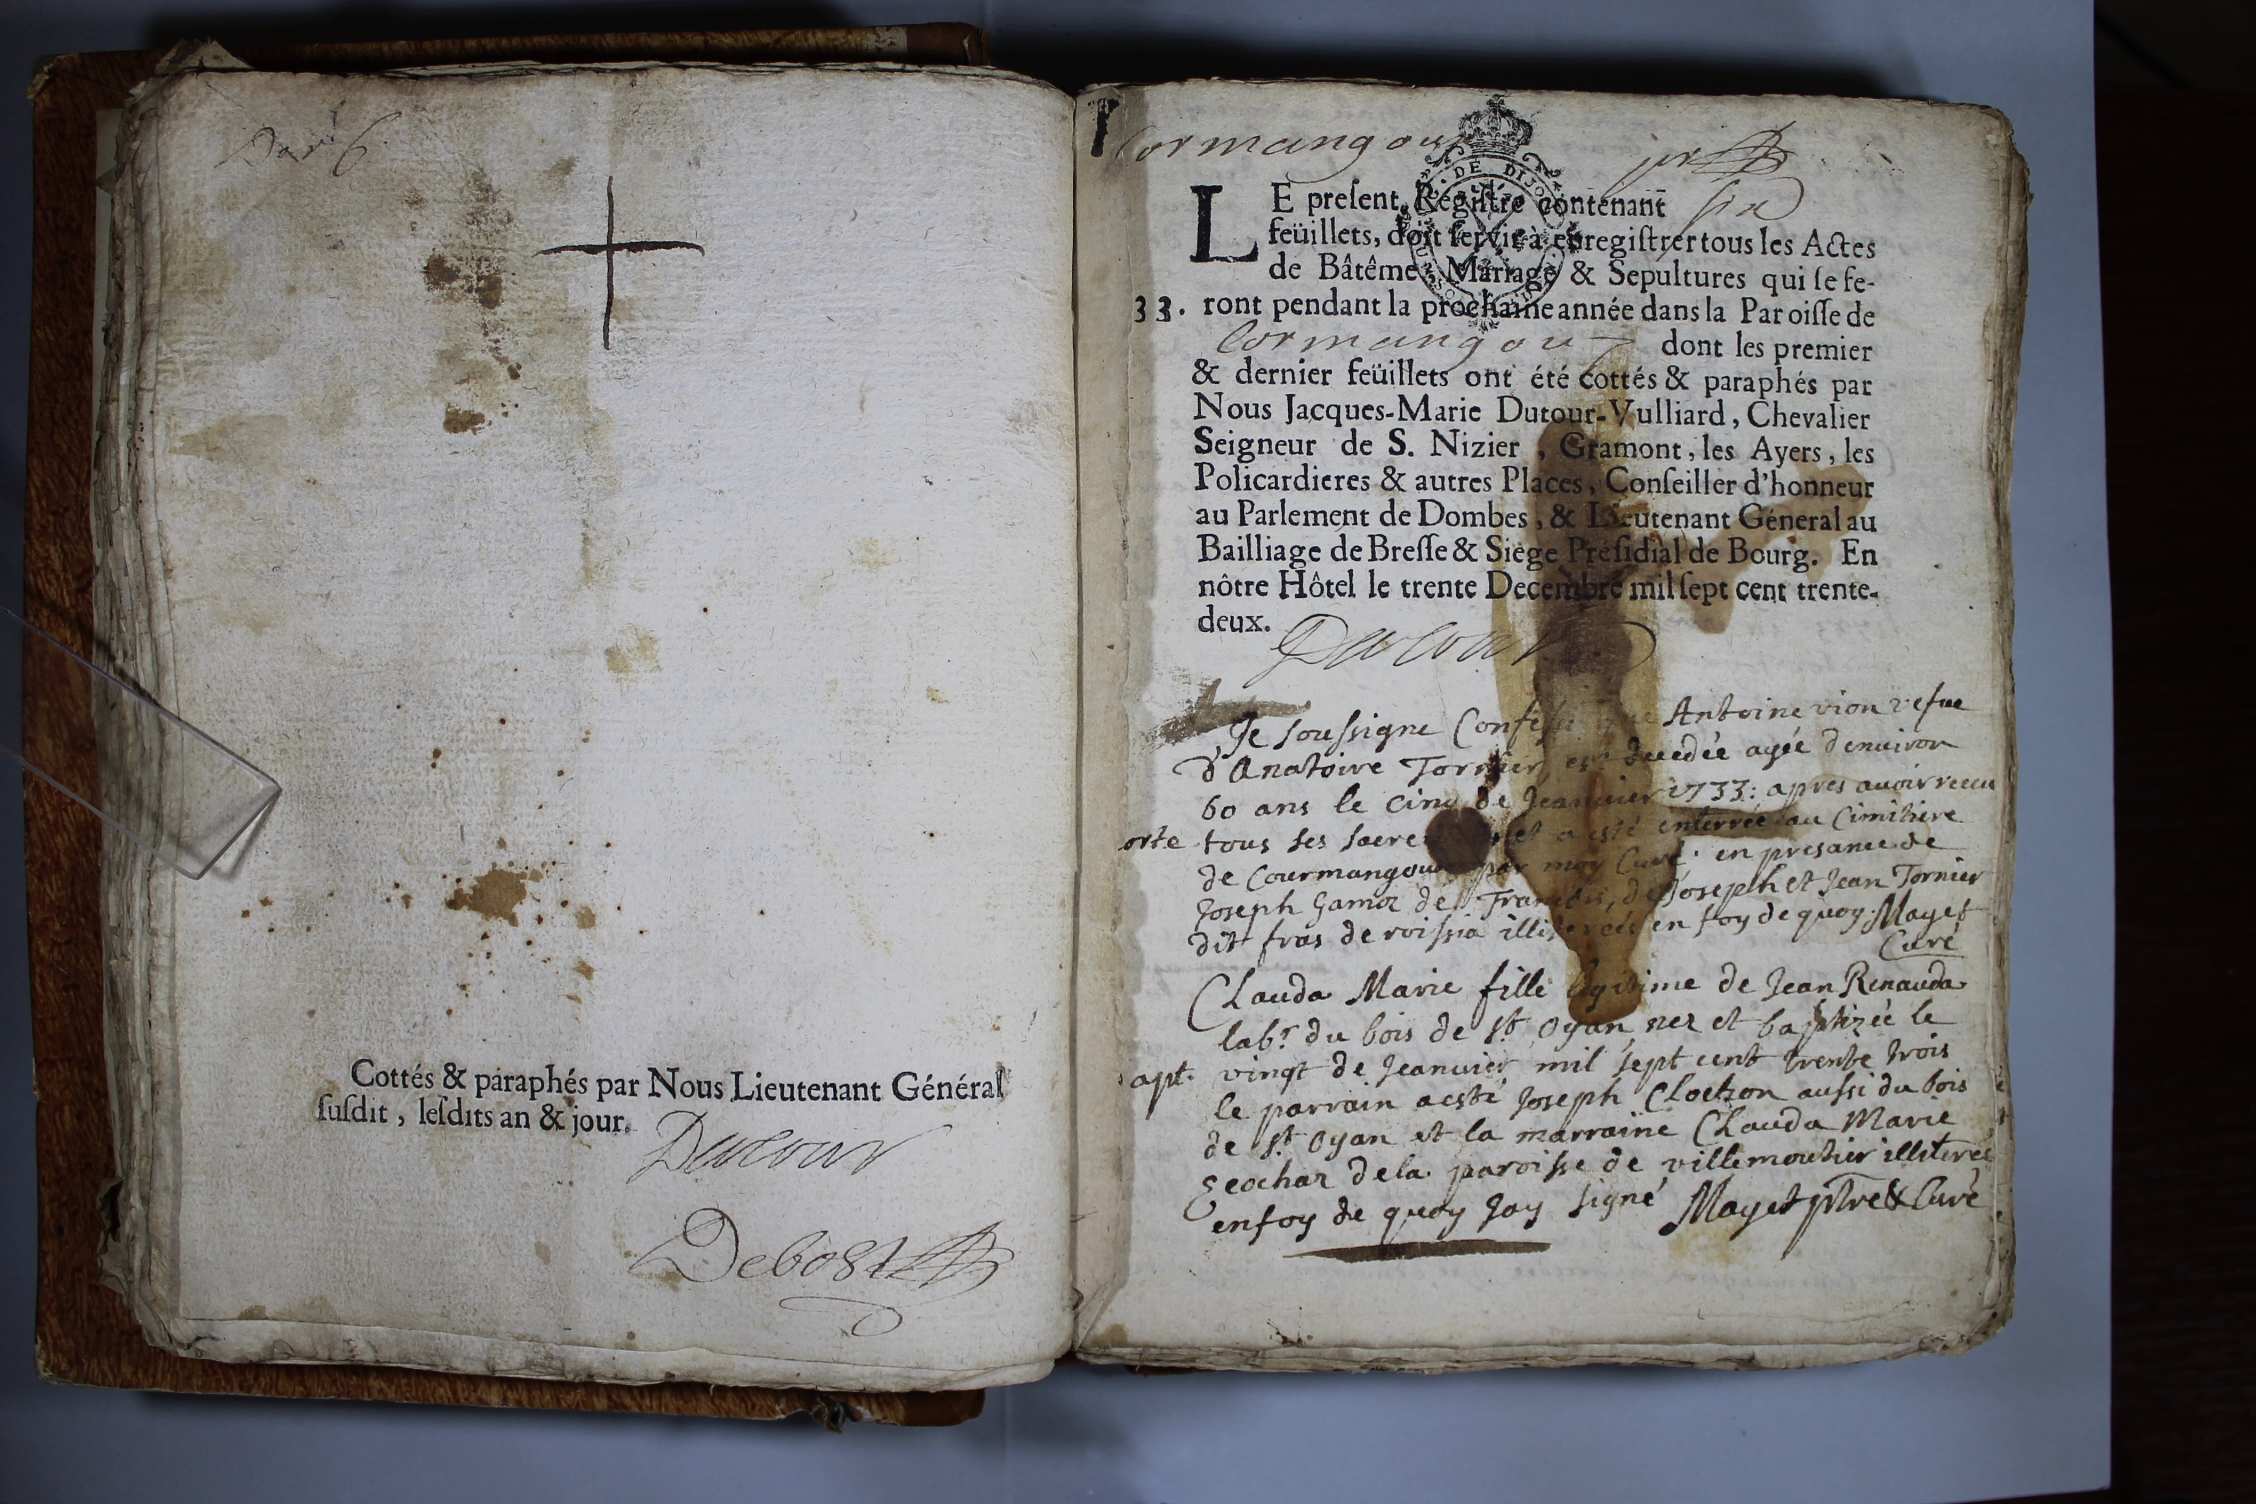 Cottés & paraphés par Nous Lieutenant Général
ſuſdit, leſdits an & jour.
Dutour
Debost
Cormangoux
LE preſent Regiſtre contenant six
feüillets, doit ſervir à enregiſtrer tous les Actes
de Bâtême, Mariage & Sepultures qui ſe fe-
33. ront pendant la prochaine année dans la Paroiſſe de
Cormangoux dont les premier
& dernier feüillets ont été cottés & paraphés par
Nous Jacques-Marie Dutour-Vulliard, Chevalier
Seigneur de S. Nizier, Gramont, les Ayers, les
Policardieres & autres Places, Conſeiller d'honneur
au Parlement de Dombes, & Lieutenant Géneral au
Bailliage de Breſſe & Siége Préſidial de Bourg. En
nôtre Hôtel le trente Decembre mil ſept cent trente-
deux.
Dutour
Je soussigne Confesse que Antoine vion vefue
d'Anatoire Tornier est decedée agée denuiron
60 ans le cinq de Jeanuier 1733: apres auoir receu
orte tous ses sacre et a esté enterrée au Cimitiere
de Courmangoux par moy Curé. en presance de
Joseph de François, de Joseph et Jean Tornier
dit fras de roissia illiterés en foy de quoy. Mayet
Curé
Clauda Marie fille legitime de Jean Renauda
labr. du bois de st. Oyan nez et baptizée le
apt. vingt de Jeanuier mil sept cent trente trois
le parrain a esté Joseph aussi du bois
de st. Oyan et la marraine Clauda Marie
de la paroisse de villemoutier illiterés
en foy de quoy Jay signé Mayet ptre & Curé